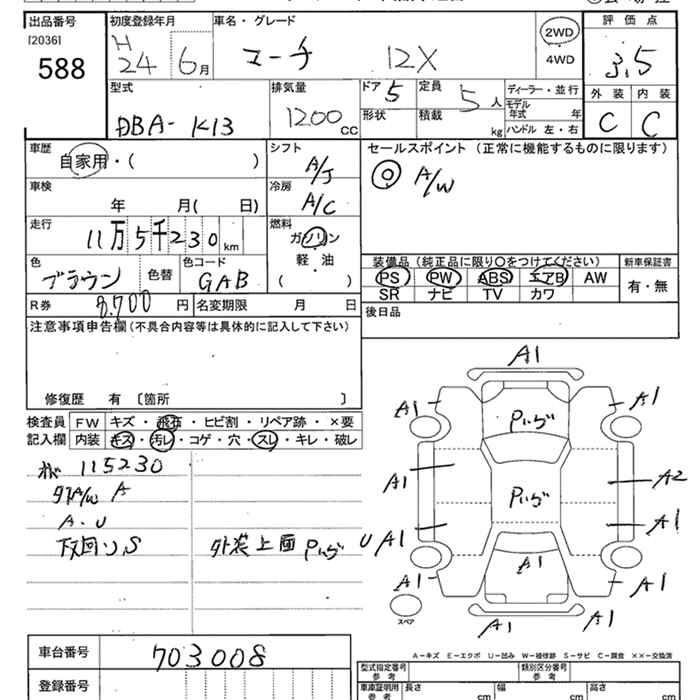 出品番号
[2036]
588
初度登録年月
H
24
6月
車名・グレード
マーチ 12X
2WD
4WD
評価点
3.5
型式
DBA-K13
排気量
1200 CC
ドア 5
形状
定員 5人
積載 kg
ディーラー・並行
モデル年式 年
ハンドル 左・右
外装 内装
C C
車歴
自家用・( )
シフト
A/J
セールスポイント (正常に機能するものに限ります)
◎ A/W
車検
年 月( 日)
冷房
A/C
走行
11万5千230km
燃料
ガソリン
軽・油
( )
色
ブラウン
色替
色コード
GAB
装備品(純正品に限り○をつけてください)
PS PW ABS エアB AW
SR ナビ TV カワ
新車保証書
有・無
R券 8,700円
名変期限 月 日
後日品
注意事項申告欄(不具合内容等は具体的に記入して下さい)
修復歴 有 [箇所 ]
検査員
記入欄
FW キズ・飛石・ヒビ割・リペア跡・×要
内装 キズ・汚レ・コゲ・穴・スレ・キレ・破レ
115230
外A/W A
A.U
下回り S
外装上面
A1
A1
A1
A1
A2
A1
U A1
A1
A1
A1
A1
A1
スペア
A-キズ E-エクボ U-凹み W-補修跡 S-サビ C-腐食 ××-交換済
車台番号
703008
登録番号
型式指定番号
参考
類別区分番号
参考
車庫証明用
参考
長さ cm
幅 cm
高さ cm